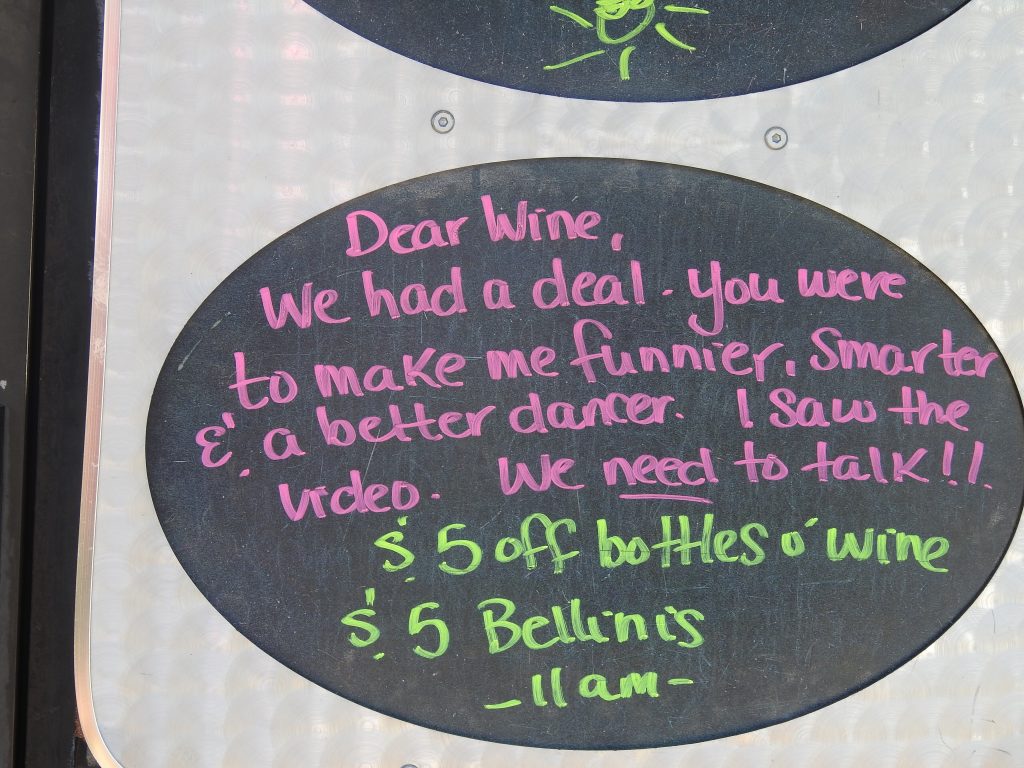 Dear Wine,
We had a deal. You were
to make me funnier, Smarter
& a better dancer. I saw the
video. We need to talk!!
$5 off bottles o' wine
$5 Bellinis
- 11am -